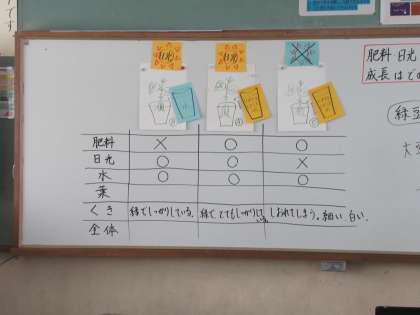 肥料 日光
成長はど
緑豆
大豆
日光
日光
肥料 × ○ ○
日光 ○ ○ ×
水 ○ ○ ○
葉
くき 緑でしっかりしている。 緑でとてもしっかりしている。 しおれてしまう。細い、白い、
全体